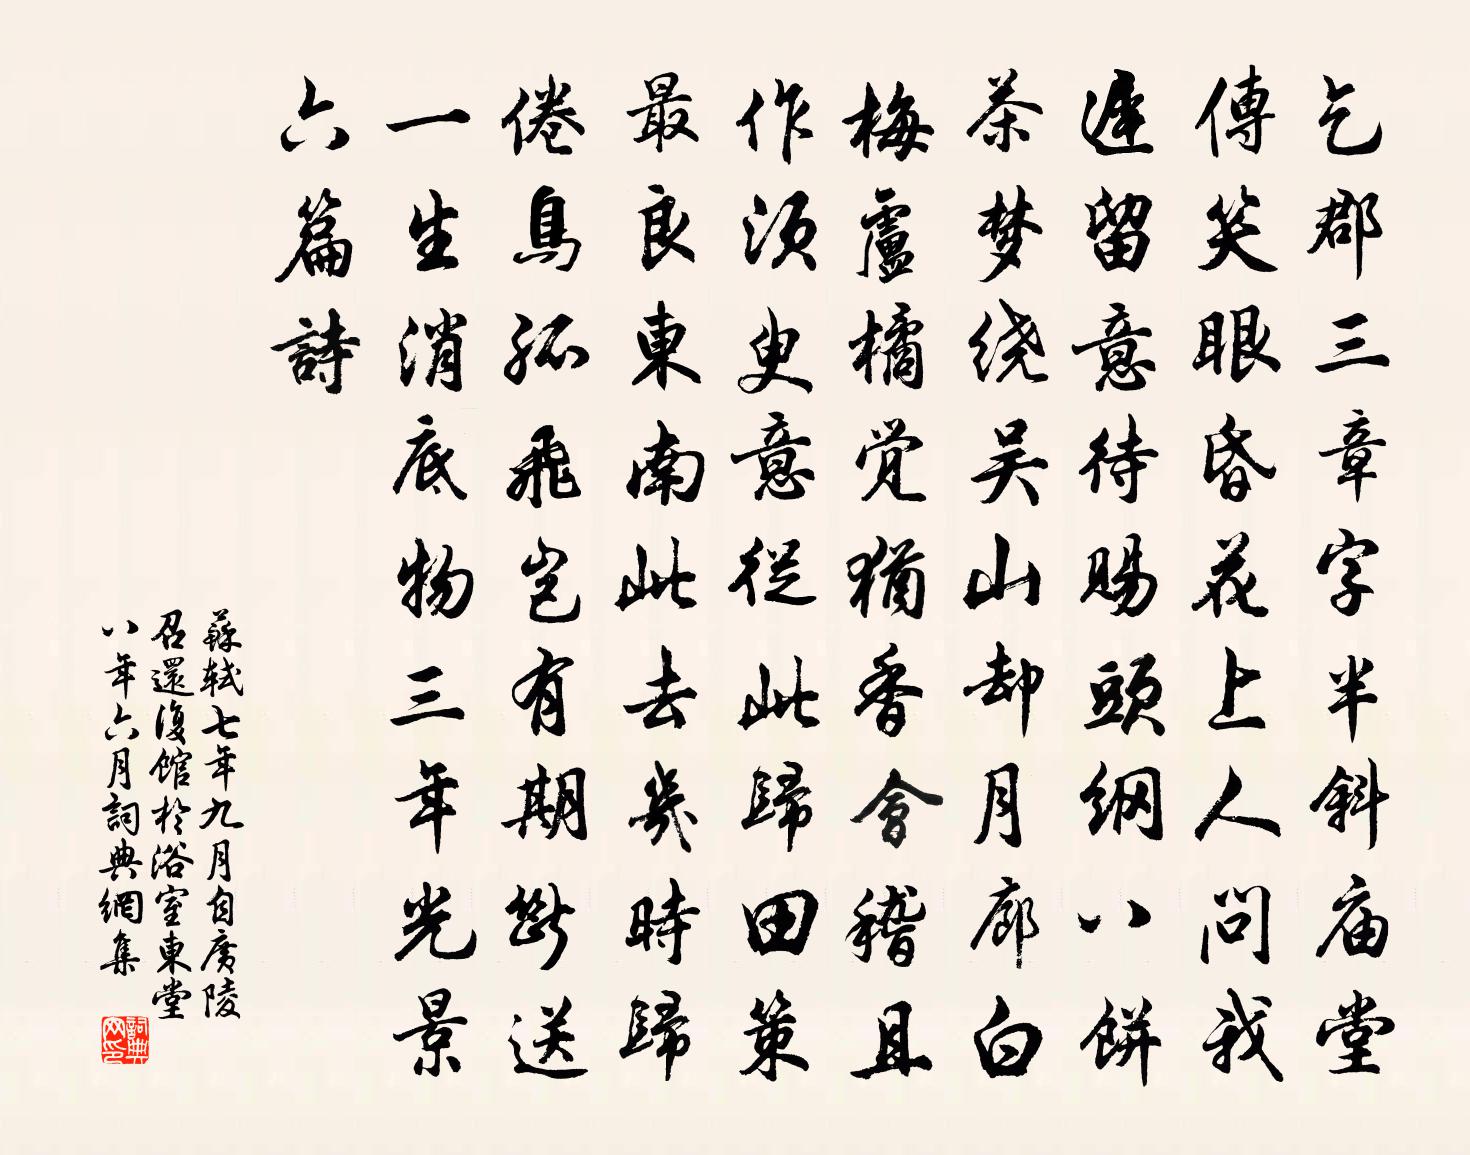 乞郡三章字半斜庙堂
傳笑眼昏花上人問我
遲留意待賜頭綱八餅
茶梦绕吴山却月廊白
梅盧橘觉猶香會稽且
作須臾意從此歸田策
最良東南此去幾時歸
倦鳥孤飛岂有期斷送
一生消底物三年光景
六篇詩
蘇軾七年九月自廣陵
召還復館於浴室東堂
八年六月詞典網集
詞典网印